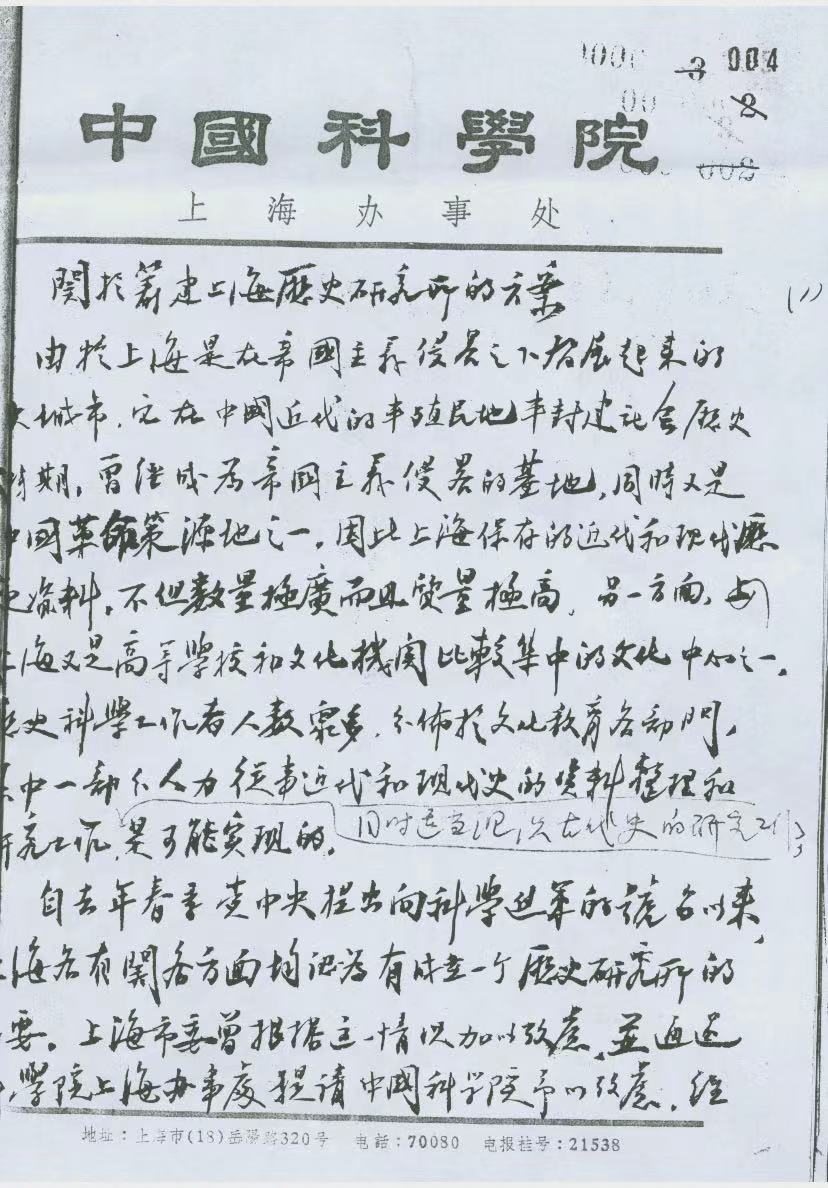 004
3
00
2
002
中國科學院
上海办事处
関於籌建上海歷史研究所的方案
(1)
由於上海是在帝國主義侵畧之下發展起來的
大城市，它在中國近代的半殖民地半封建社會歷史
時期，曾經成為帝國主義侵畧的基地，同時又是
中國革命策源地之一，因此上海保存的近代和现代歷
史資料，不但数量極廣而且質量極高，另一方面，由
上海又是高等學校和文化機関比較集中的文化中心之一，
歷史科學工作者人数眾多，分佈於文化教育各部門，
其中一部分人力從事近代和現代史的資料整理和
研究工作，是可能实現的。
同时适当配
古代史的研究工作，
自去年春季党中央提出向科學進軍的號召以來，
上海各有関各方面均認為有成立一个歷史研究所的
要。上海市委曾根据这一情况加以攷慮，並通过
學院上海办事處提請中國科学院予以攷慮，經
地址：上海市(18)岳陽路320号 电話：70080 电报挂号：21538